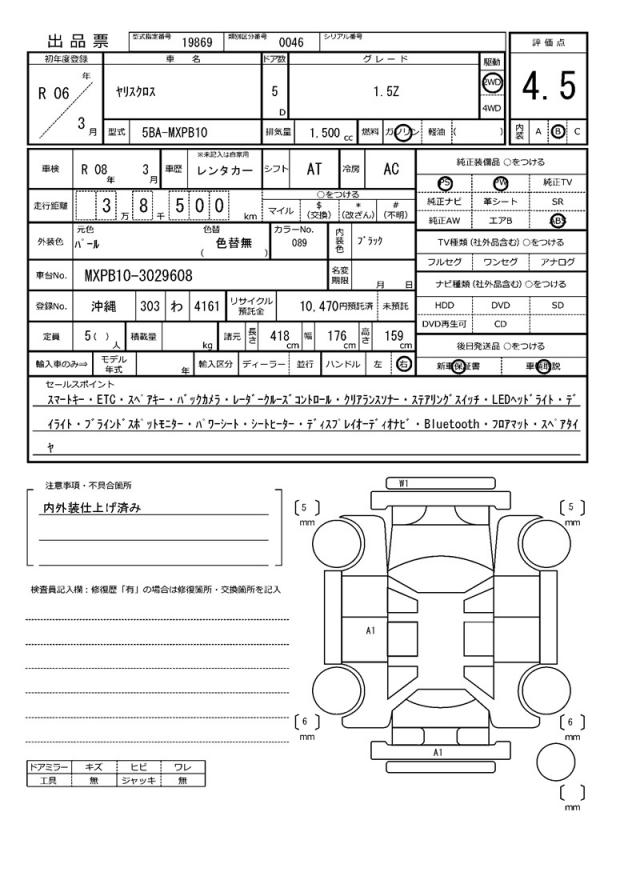 出品票 型式指定番号 19869 類別区分番号 0046 シリアル番号
評価点
4.5
内装 A B C
初年度登録 車名 ドア数 グレード 駆動
R 06 年 3 月 ヤリスクロス 5 D 1.5Z 2WD 4WD
型式 5BA-MXPB10 排気量 1.500 cc 燃料 ガソリン 軽油 ( )
車検 R 08 年 3 月 車歴 ※未記入は自家用 レンタカー シフト AT 冷房 AC
走行距離 3 万 8 千 5 0 0 km ○をつける マイル $ (交換) * (改ざん) # (不明)
外装色 元色 パール 色替 ( 色替無 ) カラーNo. 089 内装色 ブラック
車台No. MXPB10-3029608 名変期限 月 日
登録No. 沖縄 303 わ 4161 リサイクル預託金 10,470円預託済 未預託
定員 5( ) 人 積載量 kg 諸元 長さ 418 cm 幅 176 cm 高さ 159 cm
輸入車のみ⇒ モデル年式 年 輸入区分 ディーラー 並行 ハンドル 左 右
純正装備品 ○をつける
PS PW 純正TV
純正ナビ 革シート SR
純正AW エアB ABS
TV種類 (社外品含む) ○をつける
フルセグ ワンセグ アナログ
ナビ種類 (社外品含む) ○をつける
HDD DVD SD
DVD再生可 CD
後日発送品 ○をつける
新車保証書 車輌取説
セールスポイント
スマートキー・ETC・スペアキー・バックカメラ・レーダークルーズコントロール・クリアランスソナー・ステアリングスイッチ・LEDヘッドライト・デ
イライト・ブラインドスポットモニター・パワーシート・シートヒーター・ディスプレイオーディオナビ・Bluetooth・フロアマット・スペアタイ
ヤ
注意事項・不具合箇所
内外装仕上げ済み
検査員記入欄：修復歴「有」の場合は修復箇所・交換箇所を記入
W1
[ 5 ] mm
[ 5 ] mm
A1
[ 6 ] mm
[ 6 ] mm
A1
[ ] mm
ドアミラー キズ ヒビ ワレ
工具 無 ジャッキ 無